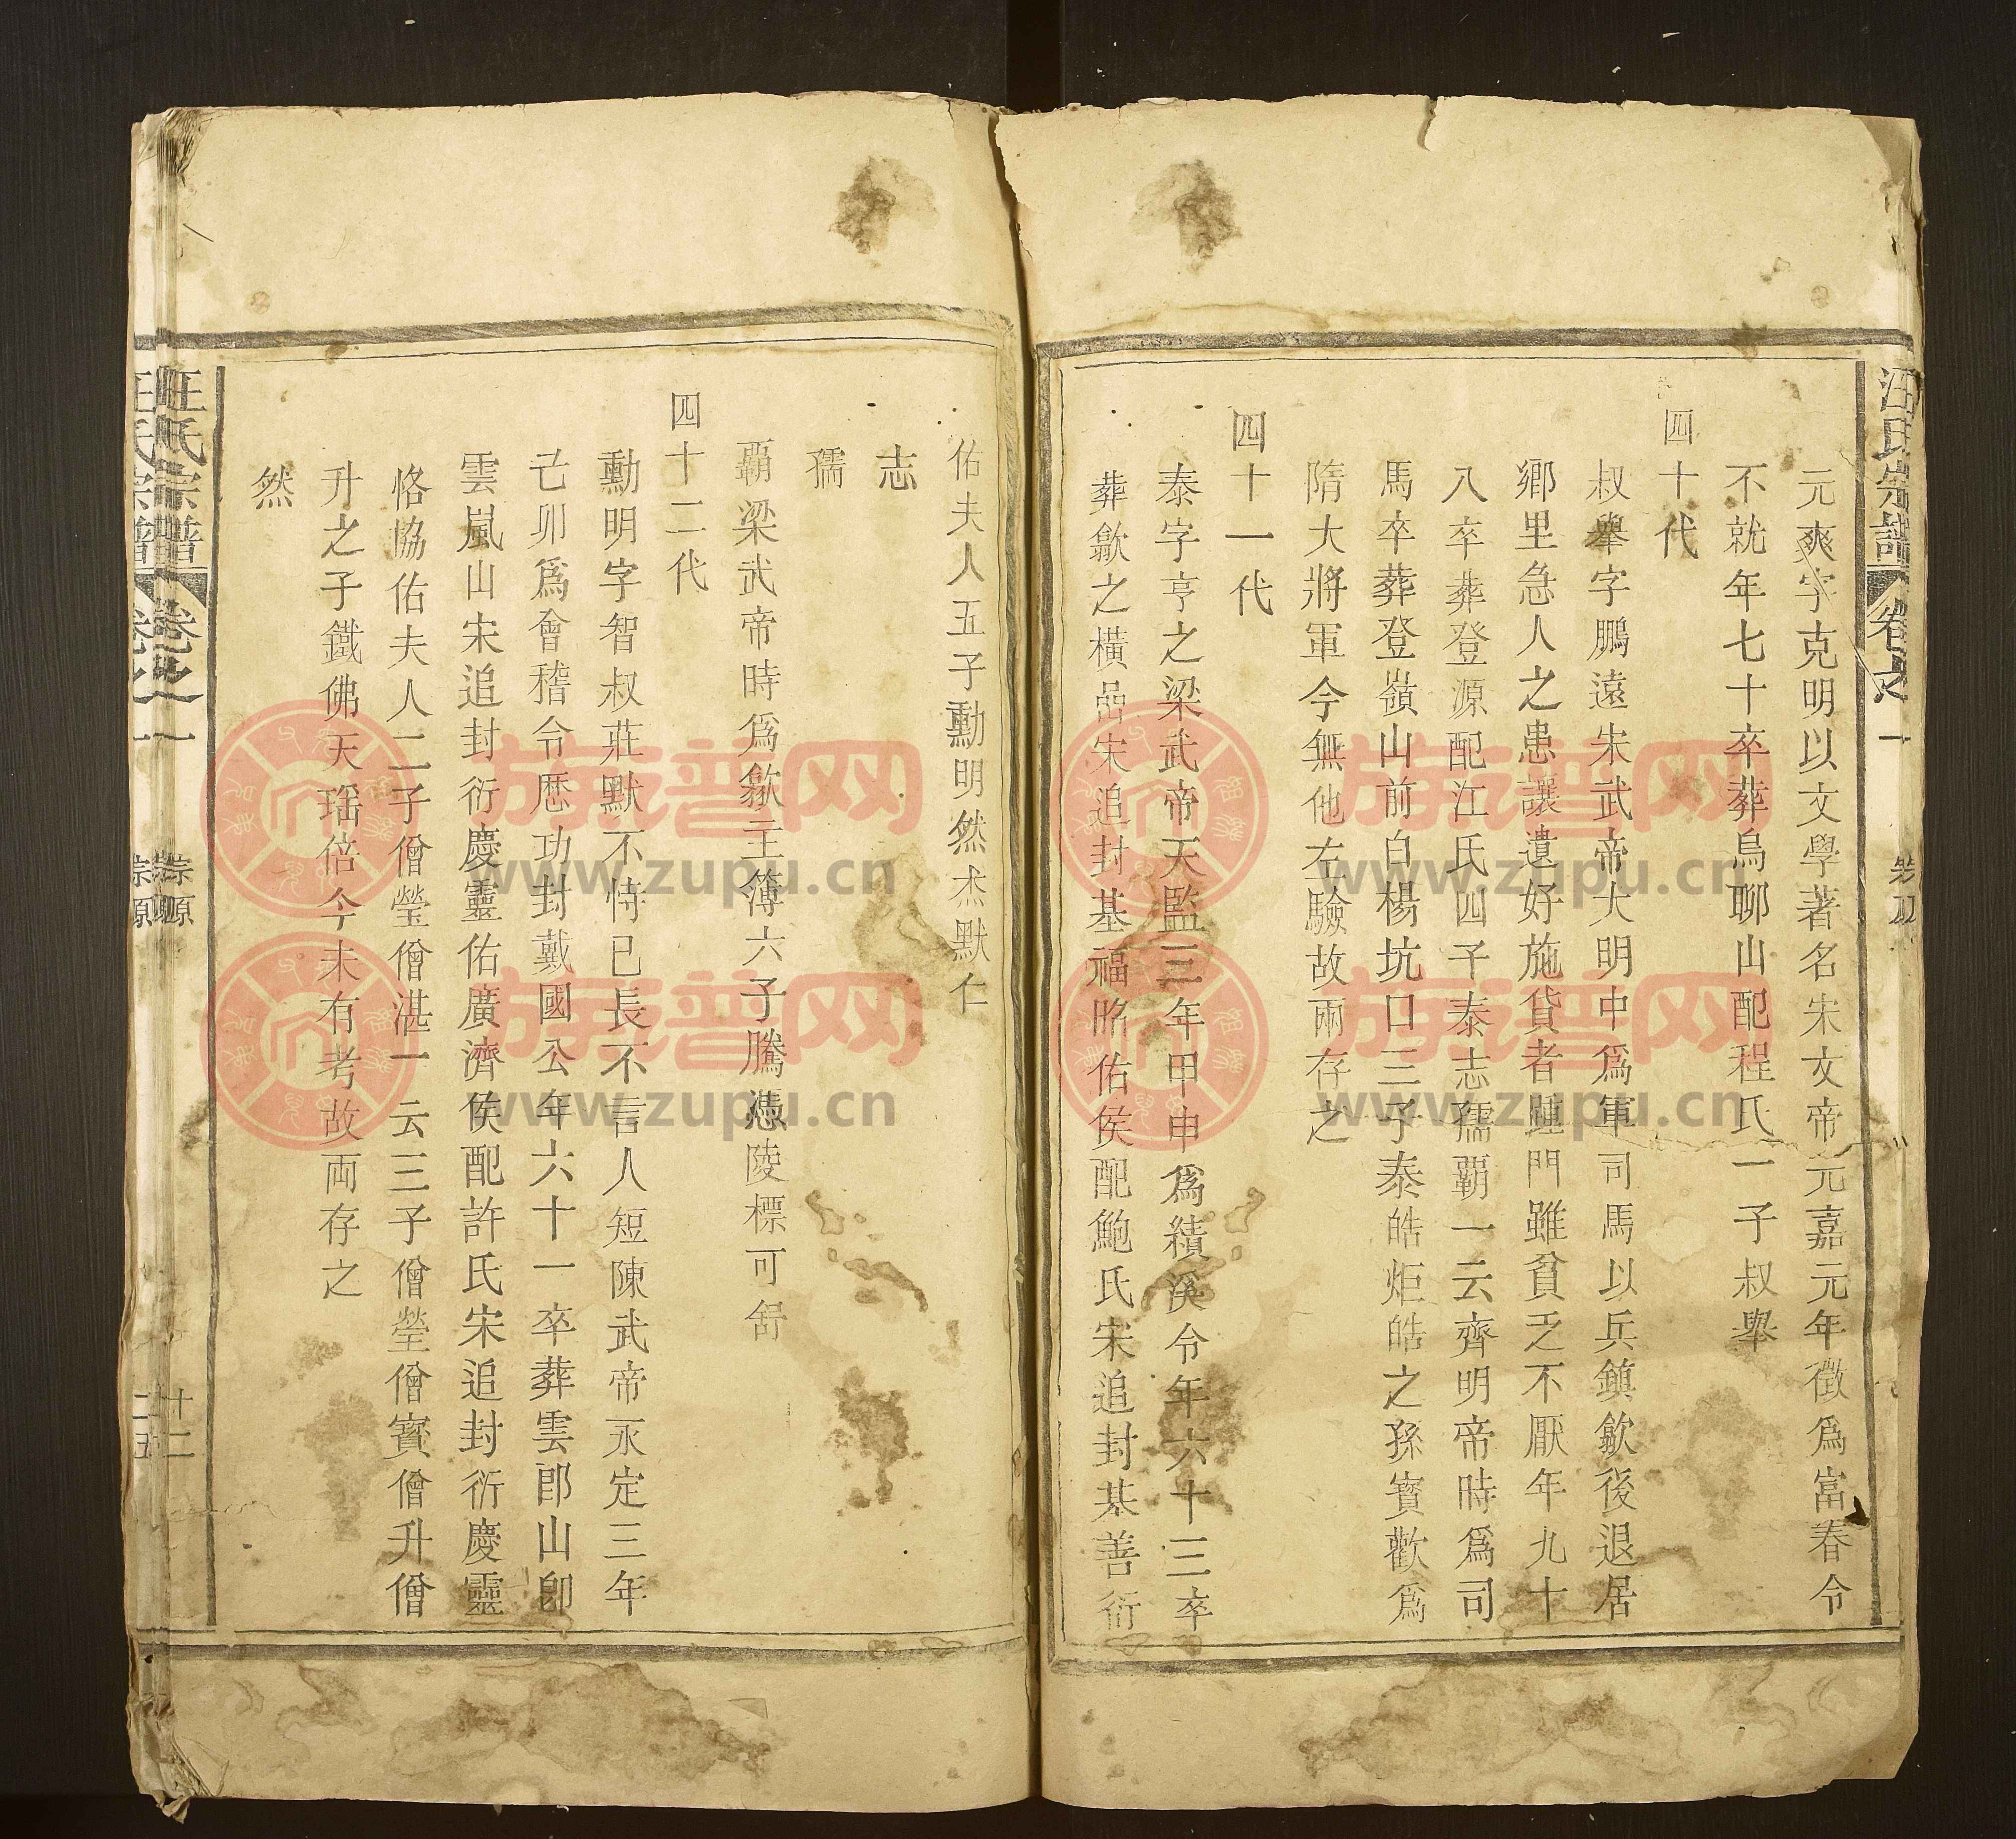 汪氏宗譜 卷之一
元爽字克明以文學著名宋文帝元嘉元年徵爲富春令
不就年七十卒葬烏聊山配程氏一子叔舉
四十代
叔舉字鵬遠宋武帝大明中爲軍司馬以兵鎮歙後退居
鄉里急人之患讓遺好施貸者踵門雖貧乏不厭年九十
八卒葬登源配江氏四子泰志孺覇一云齊明帝時爲司
馬卒葬登嶺山前白楊坑口三子泰皓炬皓之孫寳歡爲
隋大將軍今無他左驗故兩存之
四十一代
泰字亨之梁武帝天監三年甲申爲績溪令年六十三卒
葬歙之橫品宋追封基福昭佑侯配鮑氏宋追封基善衍
佑夫人五子勳明然杰默仁
志
孺
覇梁武帝時爲歙主簿六子騰憑陵標可舒
四十二代
勳明字智叔莊默不恃已長不言人短陳武帝永定三年
己卯爲會稽令歷功封戴國公年六十一卒葬雲郎山卽
雲嵐山宋追封衍慶靈佑廣濟侯配許氏宋追封衍慶靈
恪協佑夫人二子僧瑩僧湛一云三子僧瑩僧寳僧升僧
升之子鐵佛天瑶倍今未有考故両存之
然
汪氏宗譜 卷之一 宗原 十二
族谱网
www.zupu.cn
族谱网
www.zupu.cn
族谱网
www.zupu.cn
族谱网
www.zupu.cn